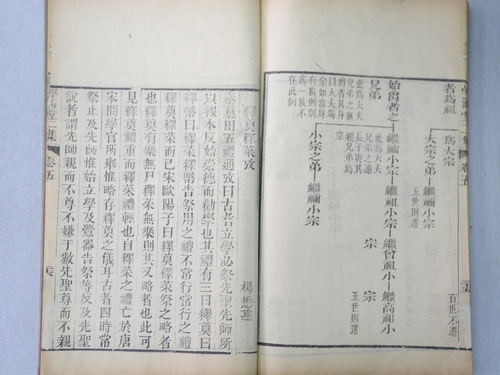 者為祖
為大宗
百世不遷
大宗之弟 繼禰小宗
五世則遷
始禰者之 繼禰小宗 繼祖小 繼曾祖小 繼高祖小
兄弟 宗 宗 宗
五世則遷
此為大夫
兄弟之無
後者其身
小宗之弟 繼禰小宗
在此例
釋奠釋菜攷
楊懋建
秦蕙田五禮通攷曰古者立學必祭先聖先師所
以報本反始崇德而勸學也其禮有三曰釋奠曰
釋菜曰釋幣釋幣告祭用之禮不常行常行之禮
釋奠釋菜而已宋歐陽子曰釋奠釋菜祭之略者
也釋奠有樂無尸釋菜無樂則其又略者也此可
見釋奠禮重而釋菜禮輕也自釋菜之禮亡於唐
宋間學官所舉惟略存釋奠之儀耳古者四時常
祭止及先師惟始立學及釁器告祭等反及先聖
說者謂先師親而不尊不嫌于數先聖尊而不親
集 卷五